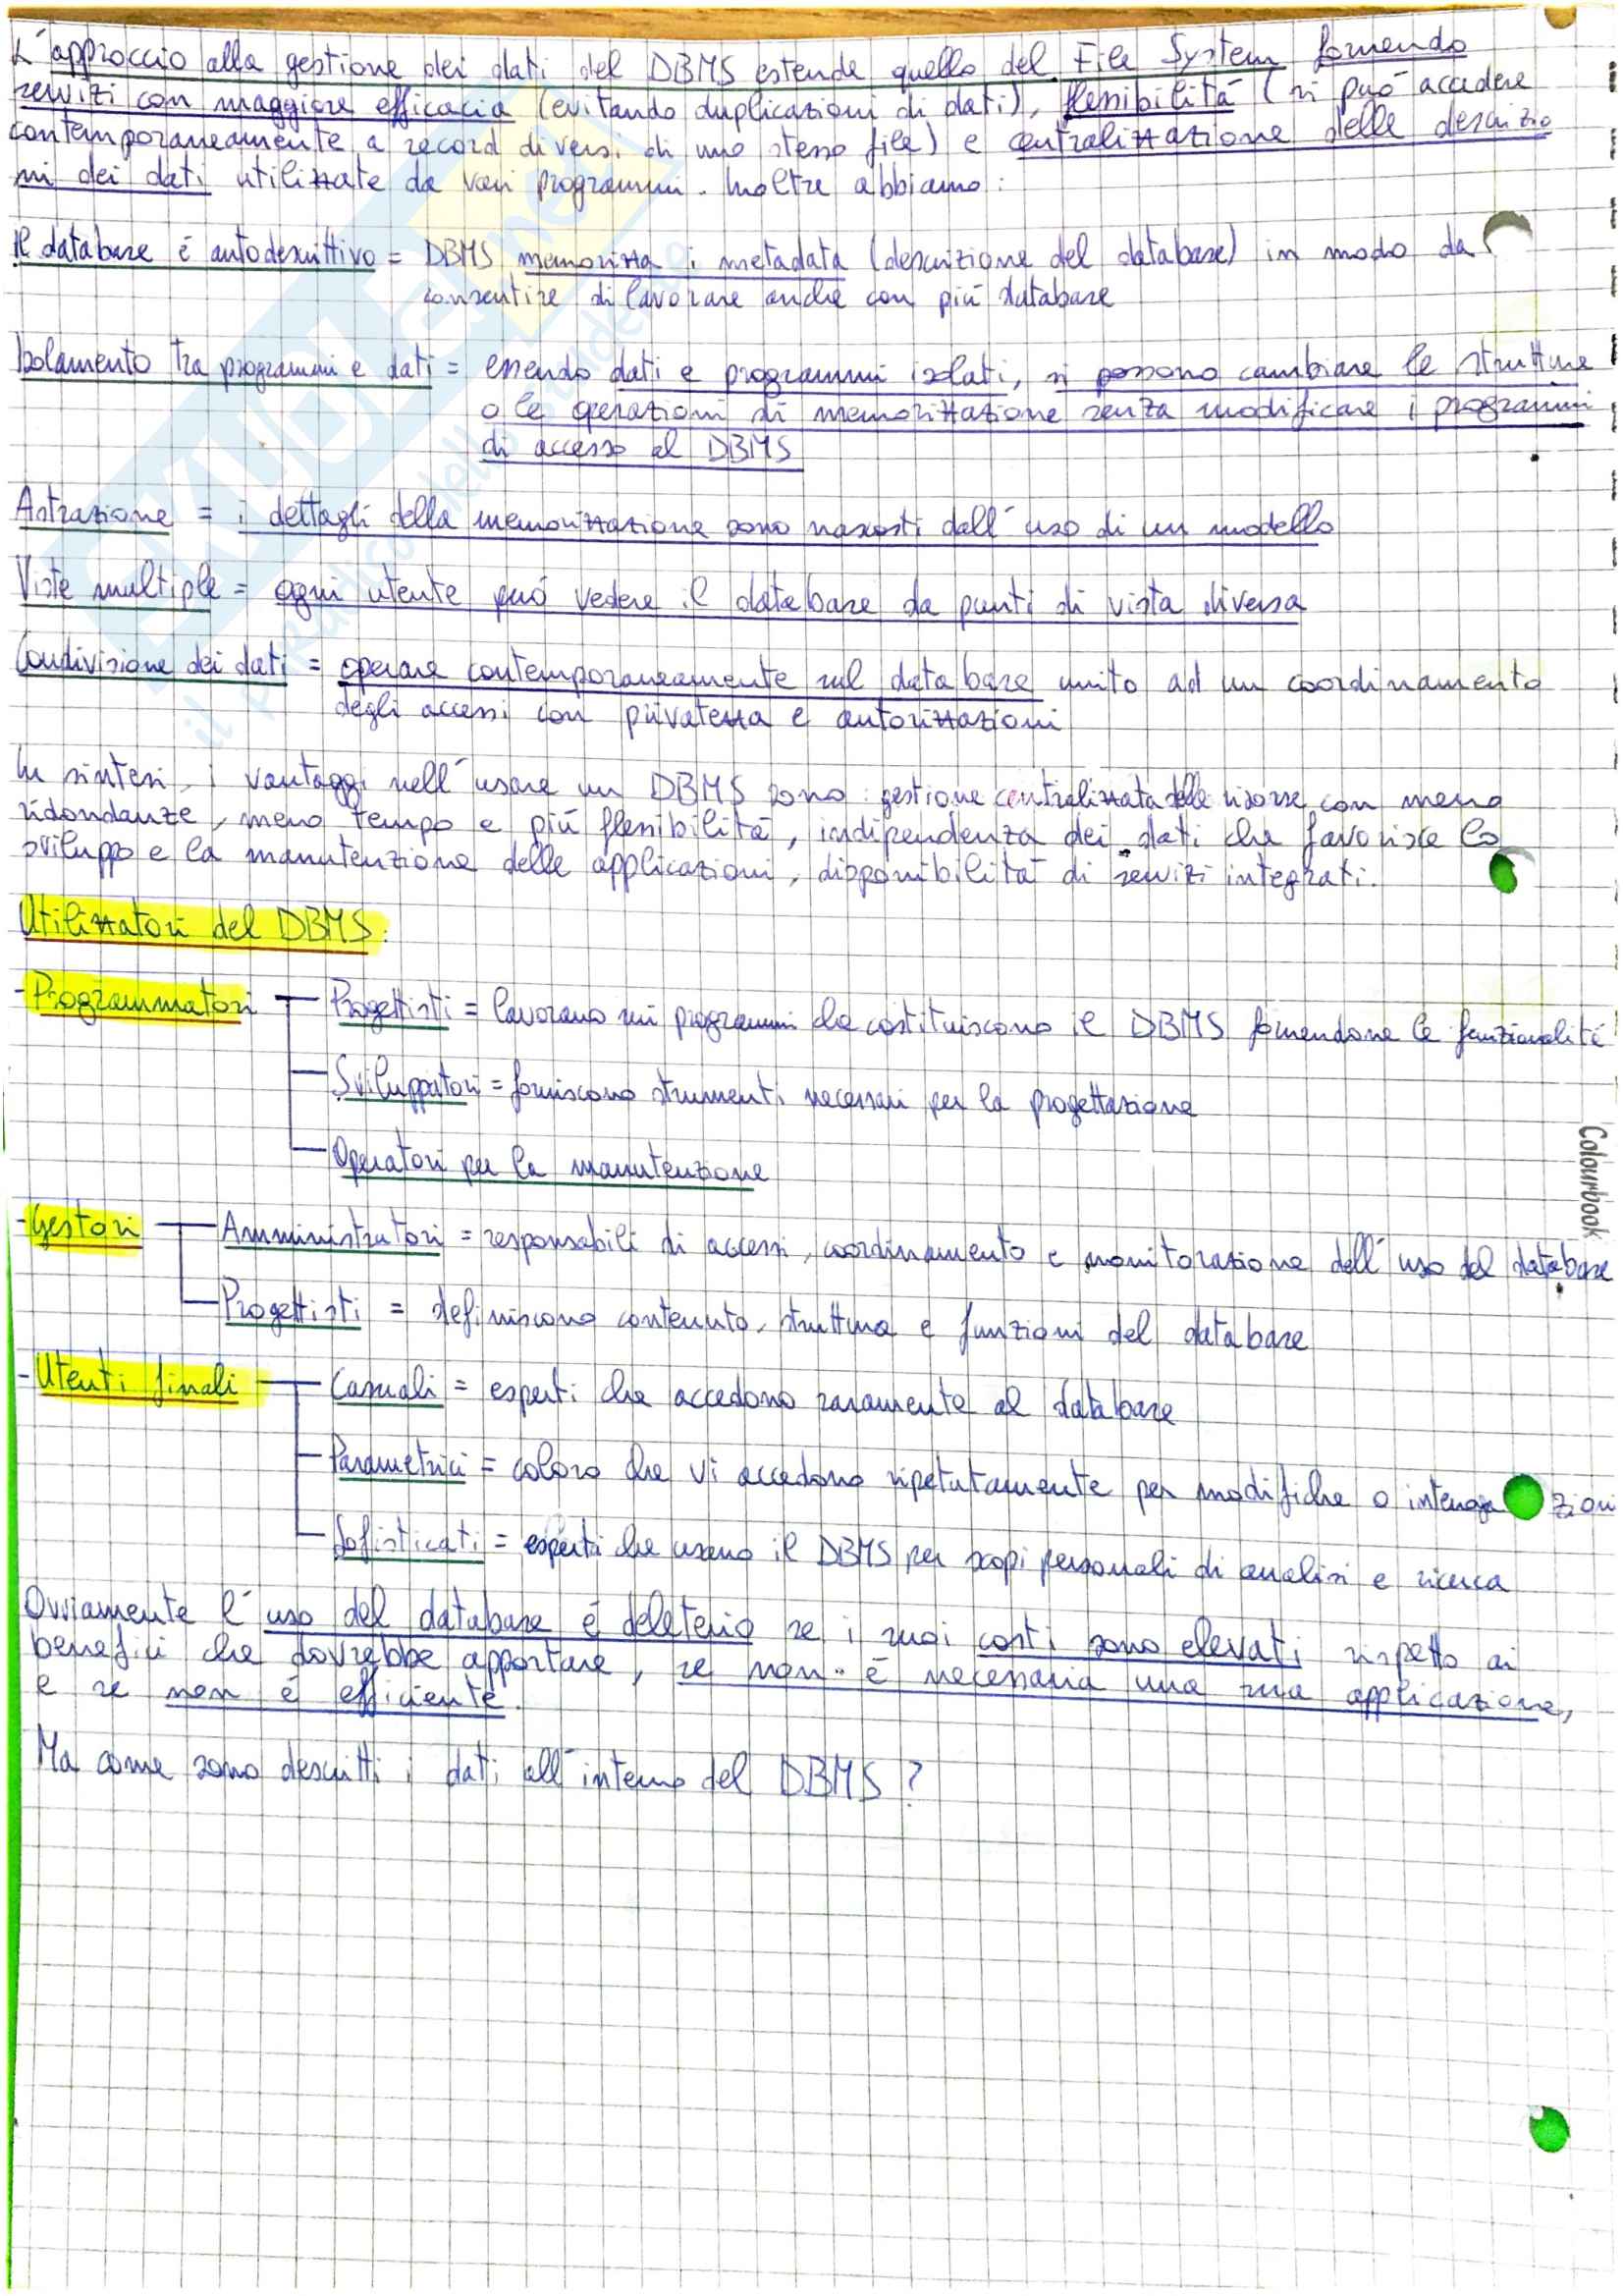 L'approccio alla gestione dei dati del DBMS estende quello del File System fornendo
servizi con maggiore efficacia (evitando duplicazioni di dati), flessibilità (si può accedere
contemporaneamente a record diversi di uno stesso file) e centralizzazione delle descrizio
ni dei dati utilizzate da vari programmi. Inoltre abbiamo:
Il database é autodescrittivo = DBMS memorizza i metadata (descrizione del database) in modo da
consentire di lavorare anche con più database
Isolamento tra programmi e dati = essendo dati e programmi isolati, si possono cambiare le strutture
o le operazioni di memorizzazione senza modificare i programmi
di accesso al DBMS
Astrazione = i dettagli della memorizzazione sono nascosti dall'uso di un modello
Viste multiple = ogni utente può vedere il database da punti di vista diversa
Condivisione dei dati = operare contemporaneamente sul database unito ad un coordinamento
degli accessi con privatezza e autorizzazioni
In sintesi, i vantaggi nell'usare un DBMS sono: gestione centralizzata delle risorse con meno
ridondanze, meno tempo e più flessibilità, indipendenza dei dati che favorisce lo
sviluppo e la manutenzione delle applicazioni, disponibilità di servizi integrati.
Utilizzatori del DBMS:
-Programmatori Progettisti = lavorano sui programmi che costituiscono il DBMS fornendone le funzionalité
Sviluppatori = forniscono strumenti necessari per la progettazione
Operatori per la manutenzione
-Gestori Amministratori = responsabili di accessi, coordinamento e monitorazione dell'uso del database
Progettisti = definiscono contenuto, struttura e funzioni del database
-Utenti finali Casuali = esperti che accedono raramente al database
Parametrici = coloro che vi accedono ripetutamente per modifiche o interroga zioni
Sofisticati = esperti che usano il DBMS per scopi personali di analisi e ricerca
Ovviamente l'uso del database é deleterio se i suoi costi sono elevati rispetto ai
benefici che dovrebbe apportare, se non é necessaria una sua applicazione,
e se non é efficiente.
Ma come sono descritti i dati all'interno del DBMS?
Colourbook